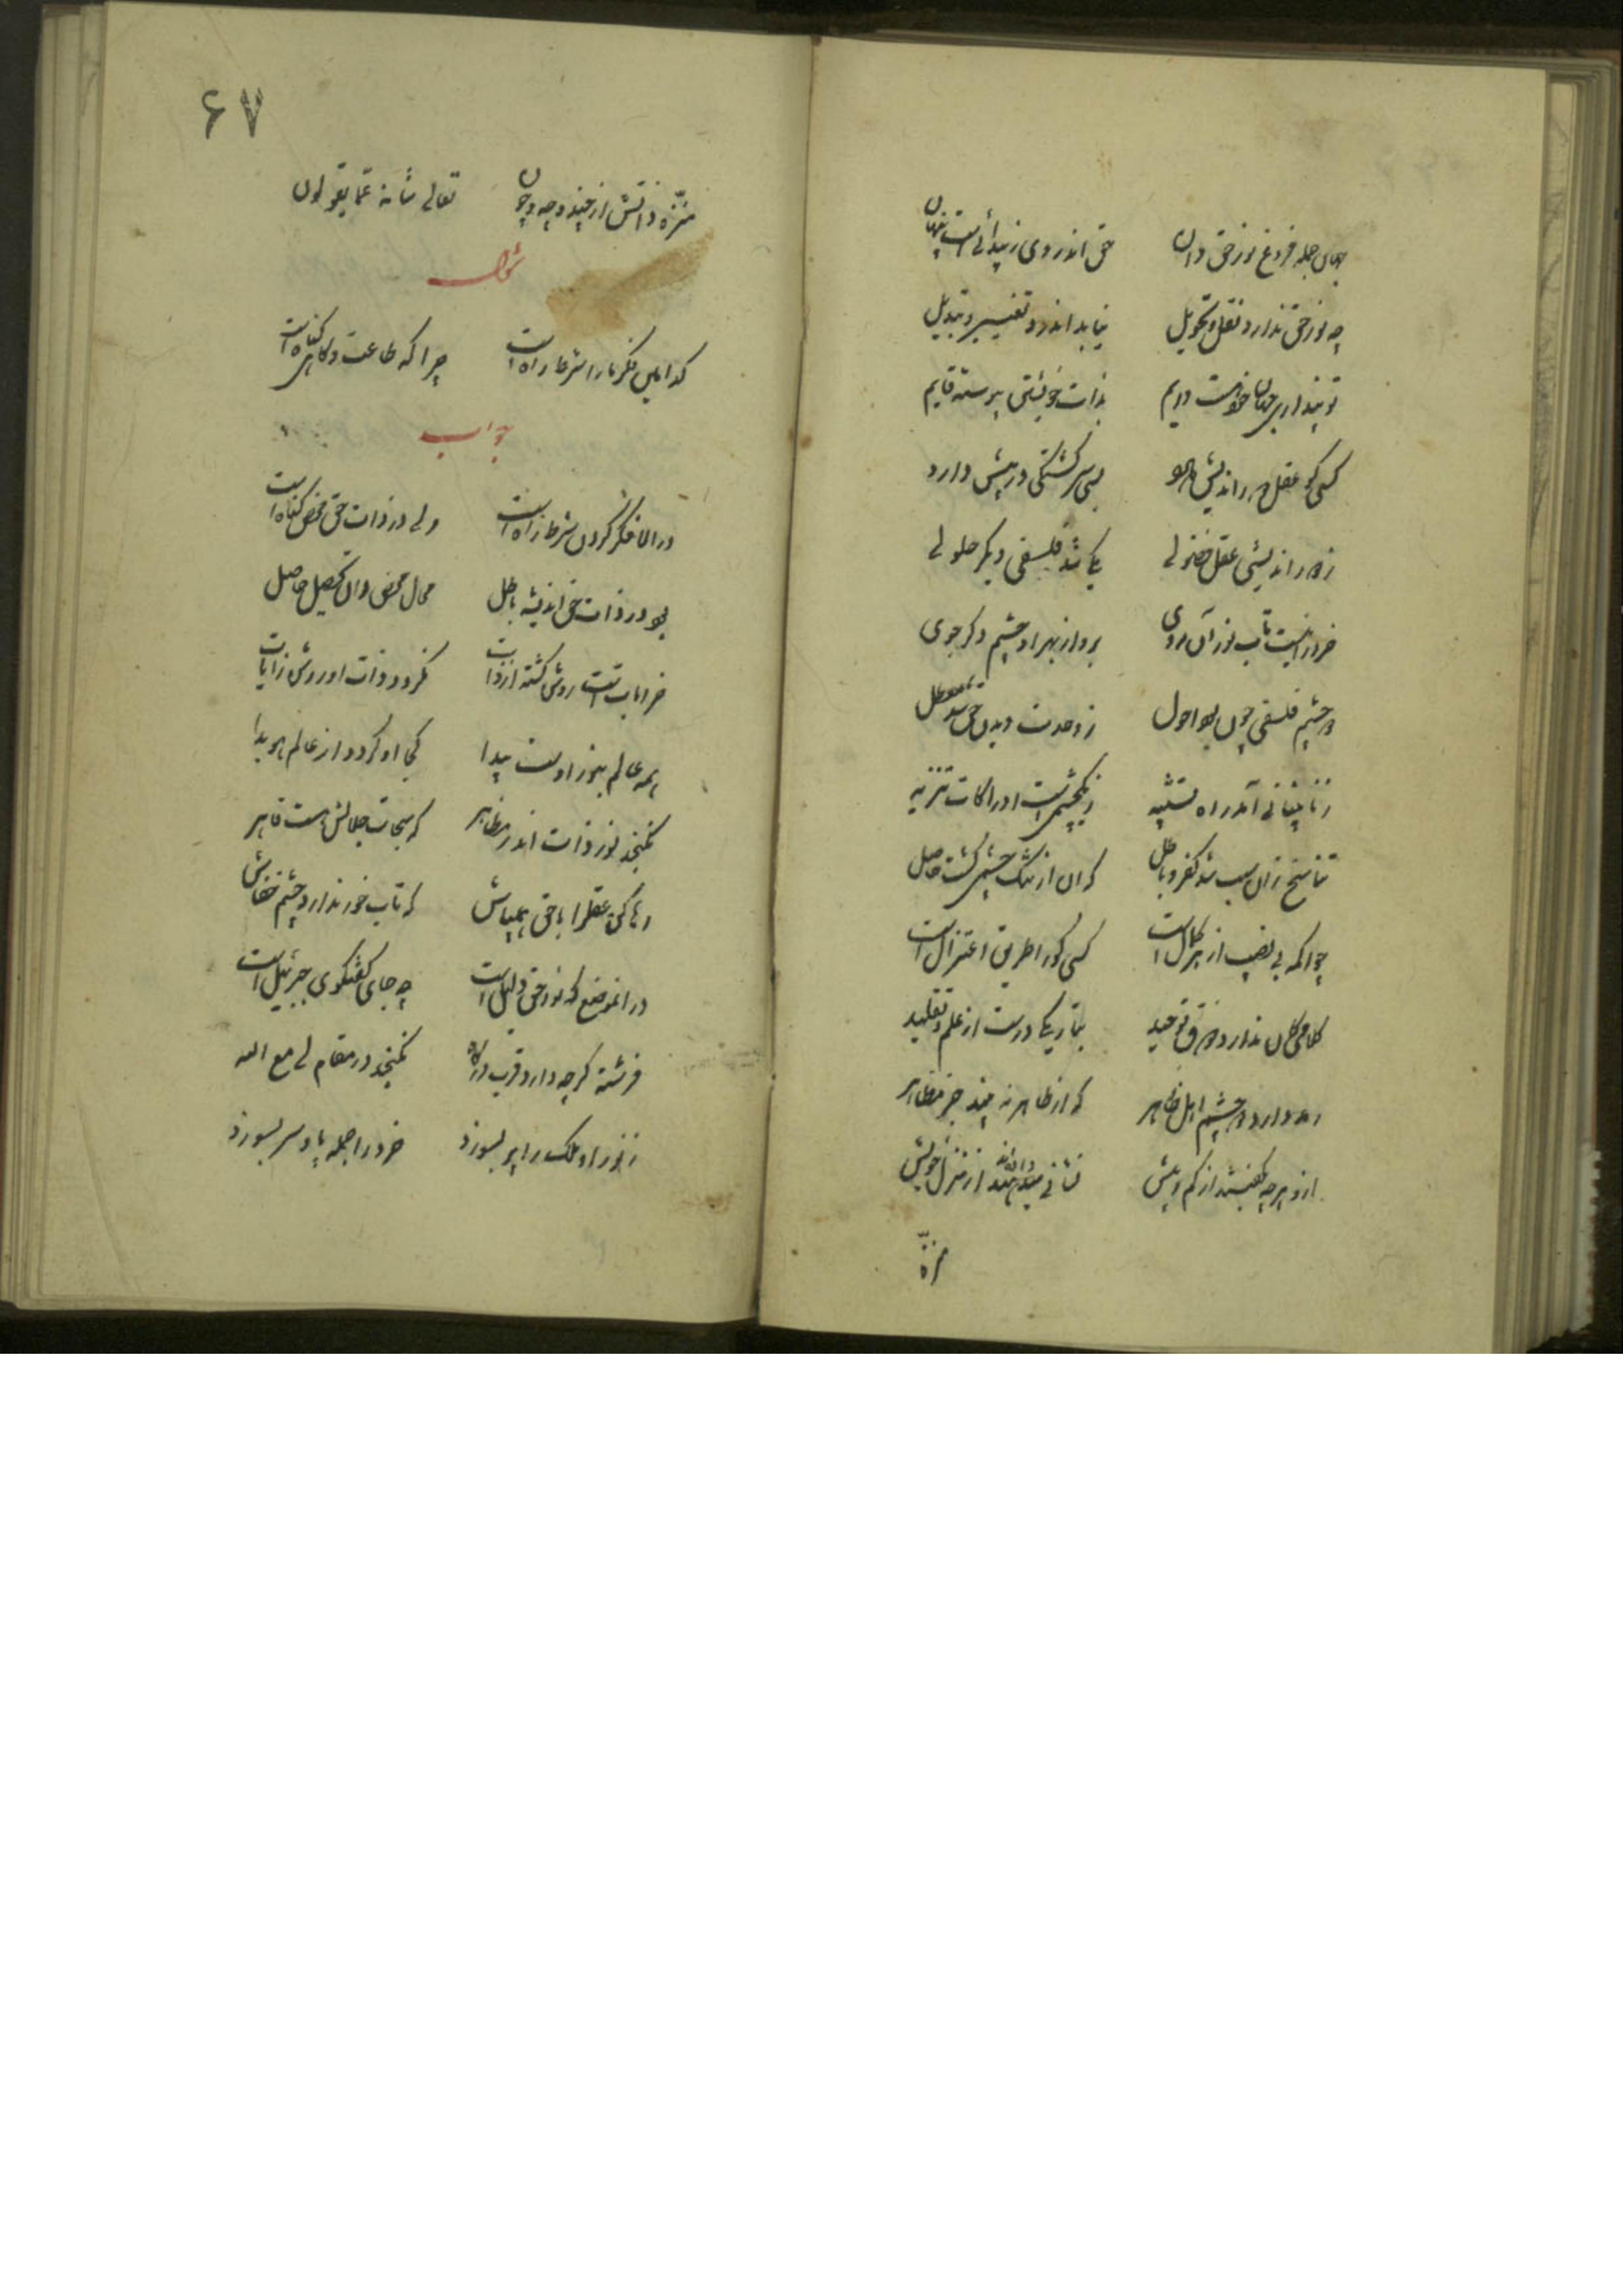 جهان جمله فروغ نور حق دان حق اندر وی ز پیدائی است پنهان
چه نور حق ندارد نقل و تحویل نیابد اندرو تغییر و تبدیل
تو پنداری جهان خود هست دایم بذات خویشتن پیوسته قایم
کسی کو عقل دور اندیش دارد بسی سرکشتکی در پیش دارد
ز دور اندیشی عقل فضولی یکی شد فلسفی دیکر حلولی
خرد را نیست تاب نور آن روی برو از بهر او چشم دکر جوی
دو چشم فلسفی چون بود احول ز وحدت دیدن حق شد معطل
ز نابینائی آمد راه تشبیه ز یکچشمی است ادراکات تنزیه
تناسخ زان سبب شد کفر و باطل که ان از تنک چشمی کشت حاصل
چو اکمه بی نصیب از هر کمال است کسی کورا طریق اعتزال است
کلامی کان ندارد ذوق توحید بتاریکی درست از علم و تقلید
رمد دارد دو چشم اهل ظاهر که از ظاهر نه بیند جز مظاهر
ازو هر چه بکفتند از کم و بیش نشانی داده‌اند از منزل خویش
منزه
۶۷
منزّه ذاتش از چند و چه و چون تعالی شانه عمّا یقولون
سؤال
کدامین فکر ما را شرط راه است چرا که طاعت و کاهی کناه است
جواب
در الا فکر کردن شرط راه است ولی در ذات حق محض کناه است
بود در ذات حق اندیشه باطل محال محض دان تحصیل حاصل
چو ایات است روشن کشته از ذات نکردد ذات او روشن ز ایات
همه عالم بنور اوست پیدا کجا او کردد از عالم هویدا
نکنجد نور ذات اندر مظاهر که سبحات جلالش هست قاهر
رها کن عقل را با حق همیباش که تاب خور ندارد چشم خفاش
در انموضع که نور حق دلیل است چه جای کفتکوی جبرئیل است
فرشته کرچه دارد قرب درکاه نکنجد در مقام لی مع الله
ز نور او ملک را پر بسوزد خرد را جمله پا و سر بسوزد